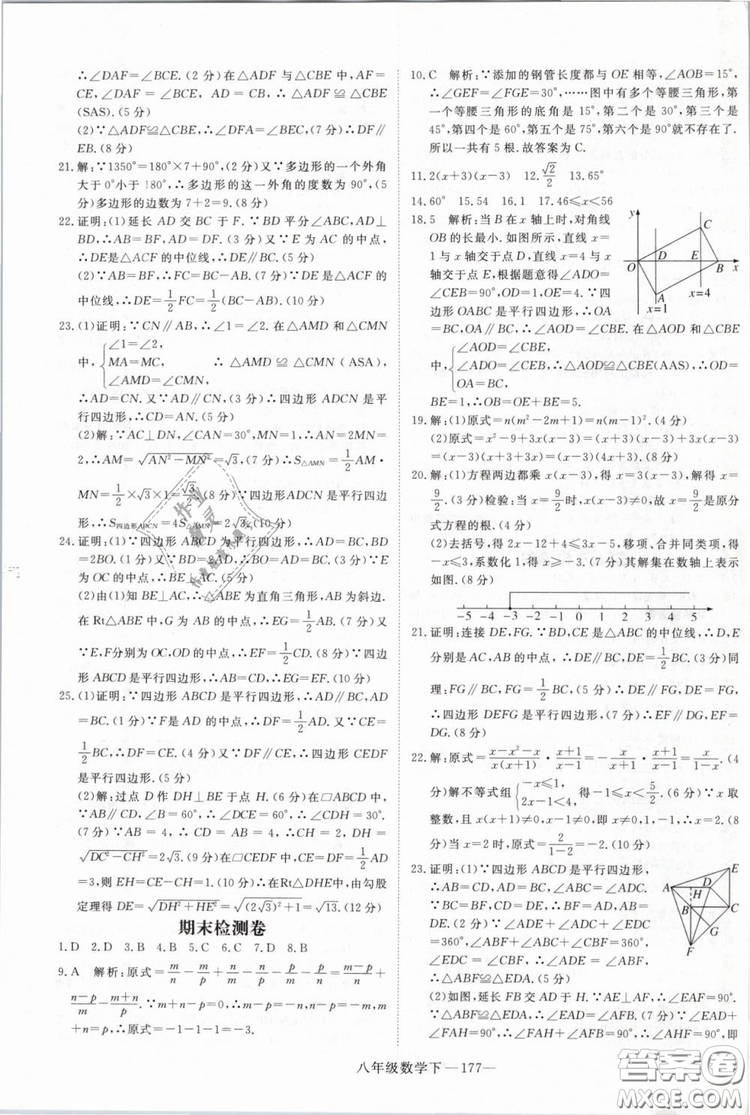 ∴∠DAF=∠BCE.(2分)在△ADF与△CBE中,AF=
CE,∠DAF=∠BCE,AD=CB,∴△ADF≌△CBE
(SAS).(5分)
(2)∵△ADF≌△CBE,∴∠DFA=∠BEC,(7分)∴DF∥
EB.(8分)
21.解:∵1350°=180°×7+90°,(2分)又∵多边形的一个外角
大于0°小于180°,∴多边形的这一外角的度数为90°,(5
分)多边形的边数为7+2=9.(8分)
22.证明:(1)延长AD交BC于F.∵BD平分∠ABC,AD⊥
BD,∴AB=BF,AD=DF.(3分)又∵E为AC的中点,
∴DE是△ACF的中位线,∴DE∥BC.(5分)
(2)∵AB=BF,∴FC=BC-AB.(7分)∵DE是△ACF的
中位线,∴DE=1/2FC=1/2(BC-AB).(10分)
23.(1)证明:∵CN∥AB,∴∠1=∠2.在△AMD和△CMN
中,{∠1=∠2, MA=MC, ∠AMD=∠CMN, ∴△AMD≌△CMN(ASA),
∴AD=CN.又∵AD∥CN,(3分)∴四边形ADCN是平
行四边形,∴CD=AN.(5分)
(2)解:∵AC⊥DN,∠CAN=30°,MN=1,∴AN=2MN=
2,∴AM=√(AN²-MN²)=√3,(7分)∴S△AMN=1/2AM·
MN=1/2×√3×1=√3/2.(8分)∵四边形ADCN是平行四边
形,∴S四边形ADCN=4S△AMN=2√3.(10分)
24.证明:(1)∵四边形ABCD为平行四边形,∴AD=BC,BD
=2BO.(1分)又∵BD=2AD,∴BO=AD=BC.(3分)∵E
为OC的中点,∴BE⊥AC.(5分)
(2)由(1)知BE⊥AC,∴△ABE为直角三角形,AB为斜边.
在Rt△ABE中,G为AB中点,∴EG=1/2AB.(7分)又
∵E,F分别为OC,OD的中点,∴EF=1/2CD.(8分)∵四
边形ABCD是平行四边形,∴AB=CD,∴EG=EF.(10分)
25.(1)证明:∵四边形ABCD是平行四边形,∴AD∥BC,AD
=BC.(2分)∵F是AD的中点,∴DF=1/2AD.又∵CE=
1/2BC,∴DF=CE.(4分)又∵DF∥CE,∴四边形CEDF
是平行四边形.(5分)
(2)解:过点D作DH⊥BE于点H.(6分)在▱ABCD中,
∵∠B=60°,∴∠DCE=60°,∴∠CDH=30°.(7分)
∵AB=4,∴CD=AB=4,∴CH=1/2CD=2,DH=
√(DC²-CH²)=2√3.(9分)在▱CEDF中,CE=DF=1/2AD
=3,则EH=CE-CH=1.(10分)∴在Rt△DHE中,由勾股
定理得DE=√(DH²+HE²)=√((2√3)²+1)=√13.(12分)
期末检测卷
1.D 2.D 3.B 4.B 5.C 6.C 7.D 8.B
9.A 解析:原式=m/n-m/p+n/p-n/m-p/m-p/n=m/n-p/n+
(n-p)/m-(m+n)/p.∵m+n-p=0,∴m-p=-n,n-p=-m,
m+n=p,∴原式=-1-1-1=-3.
10.C 解析:∵添加的钢管长度都与OE相等,∠AOB=15°,
∴∠GEF=∠FGE=30°,……图中有多个等腰三角形,第
一个等腰三角形的底角是15°,第二个是30°,第三个是
45°,第四个是60°,第五个是75°,第六个是90°就不存在了.
所以一共有5根.故答案为C.
11.2(x+3)(x-3) 12.√2/2 13.65°
14.60° 15.54 16.1 17.46≤x<56
18.5 解析:当B在x轴上时,对角线
OB的长最小.如图所示,直线x=1
与x轴交于点D,直线x=4与x
轴交于点E,根据题意得∠ADO=
∠CEB=90°,OD=1,OE=4.∵四
边形OABC是平行四边形,∴OA
=BC,OA∥BC,∴∠AOD=∠CBE.在△AOD和△CBE
中,{∠AOD=∠CBE, ∠ADO=∠CEB, OA=BC, ∴△AOD≌△CBE(AAS),∴OD=
BE=1,∴OB=OE+BE=5.
y C O D E B x A x=1 x=4
19.解:(1)原式=n(m²-2m+1)=n(m-1)².(4分)
(2)原式=x²-9+3x(x-3)=(x+3)(x-3)+3x(x-3)=
(x-3)(x+3+3x)=(x-3)(4x+3).(8分)
20.解:(1)方程两边都乘x(x-3),得2x=3(x-3),解得x=
9/2.(3分)检验:当x=9/2时,x(x-3)≠0,故x=9/2是原分
式方程的根.(4分)
(2)去括号,得2x-12+4≤3x-5,移项、合并同类项,得
-x≤3,系数化为1,得x≥-3.(7分)其解集在数轴上表示
如图.(8分)
-5 -4 -3 -2 -1 0 1 2 3 4 5
21.证明:连接DE,FG.∵BD,CE是△ABC的中位线,∴D,E
分别是AC,AB的中点,∴DE∥BC,DE=1/2BC.(3分)同
理:FG∥BC,FG=1/2BC,(5分)∴DE∥FG,DE=FG,
∴四边形DEFG是平行四边形,(7分)∴EF=DG,EF∥
DG.(8分)
22.解:原式=(x-x²-x)/(x(x+1))·(x+1)/(x-1)=-x/(x+1)·(x+1)/(x-1)=x/(1-x).(4
分)解不等式组{-x≤1, 2x-1<4, 得-1≤x<5/2.(6分)∵x取
整数,且x(x+1)(x-1)≠0,即x≠0,1,-1,∴x=2.(8
分)当x=2时,原式=2/(1-2)=-2.(10分)
23.证明:(1)∵四边形ABCD是平行四边形,
∴AB=CD,AD=BC,∠ABC=∠ADC.
∵AD=DE,AB=BF,∴DE=BC,BF=
CD.∵∠ADE+∠ADC+∠EDC=
360°,∠ABF+∠ABC+∠CBF=360°,
∠EDC=∠CBF,∴∠ADE=∠ABF.
∴△ABF≌△EDA.(5分)
E D A H B C G F
(2)如图,延长FB交AD于H.∵AE⊥AF,∴∠EAF=
90°.(6分)∵△ABF≌△EDA,∴∠EAD=∠AFB.∵∠EAD+
∠FAH=90°,∴∠FAH+∠AFB=90°,∴∠AHF=90°,即
八年级数学下—177—
答案圈
MXQE.COM